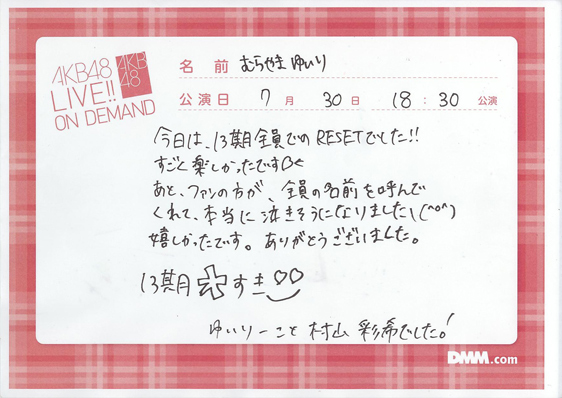 AKB48
LIVE!!
ON DEMAND
AKB
48
名前 むらやま ゆいり
公演日 7月 30日 18:30 公演
今日は、13期全員でのRESETでした!!
すごく楽しかったです
あと、ファンの方が、全員の名前を呼んで
くれて、本当に泣きそうになりました\(^o^)
嬉しかったです。ありがとうございました。
13期大すき♡♡
ゆいりーこと 村山 彩希でした!
DMM.com